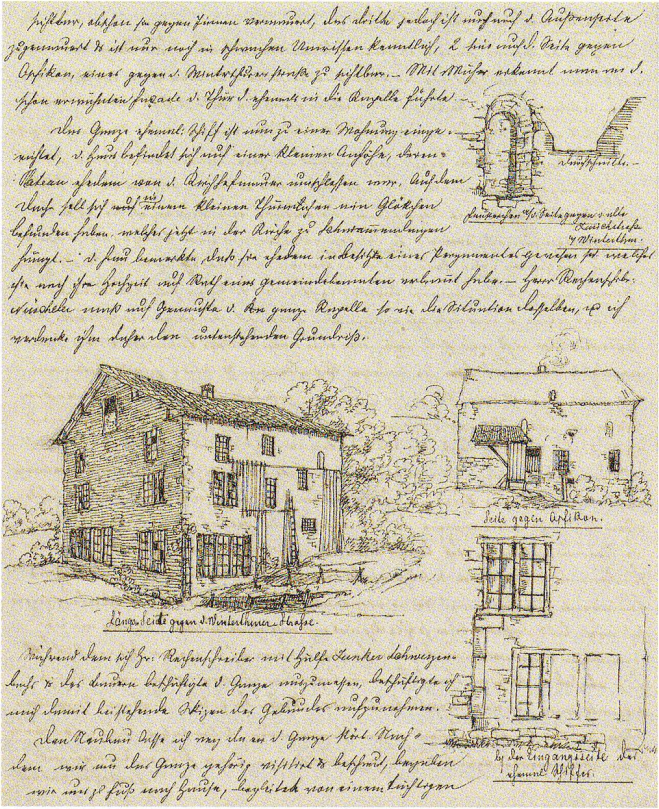 sichtbar, obschon sie gegen Innen vermauert, das dritte jedoch ist auch nach d. Außenseite
zugemauert & ist nur noch in schwachen Umrissen kenntlich, 2 sind auf d. Seite gegen
Opfikon, eines gegen d. Winterthurer straße zu sichtbar. – Mit Mühe erkennt man an d.
schon erwähnten Façade d. Thür d. ehemals in die Kapelle führte.
Das Ganze ehemal. Schiff ist nun zu einer Wohnung einge-
richtet, d. Haus befindet sich auf einer kleinen Anhöhe, deren
Plateau ehedem von d. Kirchhofmauer umschlossen war. Auf dem
Dach soll sich in einem kleinen Thürmchen ein Glöckchen
befunden haben, welches jetzt in der Kirche zu Schwamendingen
hängt. – d. Frau bemerkte, daß sie ehedem im Besitze eines Pergamentes gewesen sei, welches
sie nach ihrer Hochzeit auf Rath eines Gemeindebeamten verbrannt habe. – Herr Rechenschrbr.
Nüscheler maß auf d. ganze Kapelle so wie die Situation derselben, & ich
verdanke ihm daher den untenstehenden Grundriß.
Durchschnitt. –
Fensterchen a/d. Seite gegen d. alte
Landstraße
n/ Winterthur.
Seite gegen Opfikon.
Längs Seite gegen d. Winterthurer-Straße.
Während dem sich Hr. Rechenschreiber mit Hülfe Junker Schwerzen-
bachs & des Bauern beschäftigte d. Ganze auszumessen, beschäftigte ich
mich damit beistehende Skizzen des Gebäudes aufzunehmen.
Den Neubau ließ ich weg da er d. Ganze stört. Nach-
dem wir nun das Ganze gehörig visitirt & beschaut, begaben
wir uns zu Fuß nach Hause, begleitet von einem tüchtigen
by der Eingangsseite des
ehemal. Schiffes.